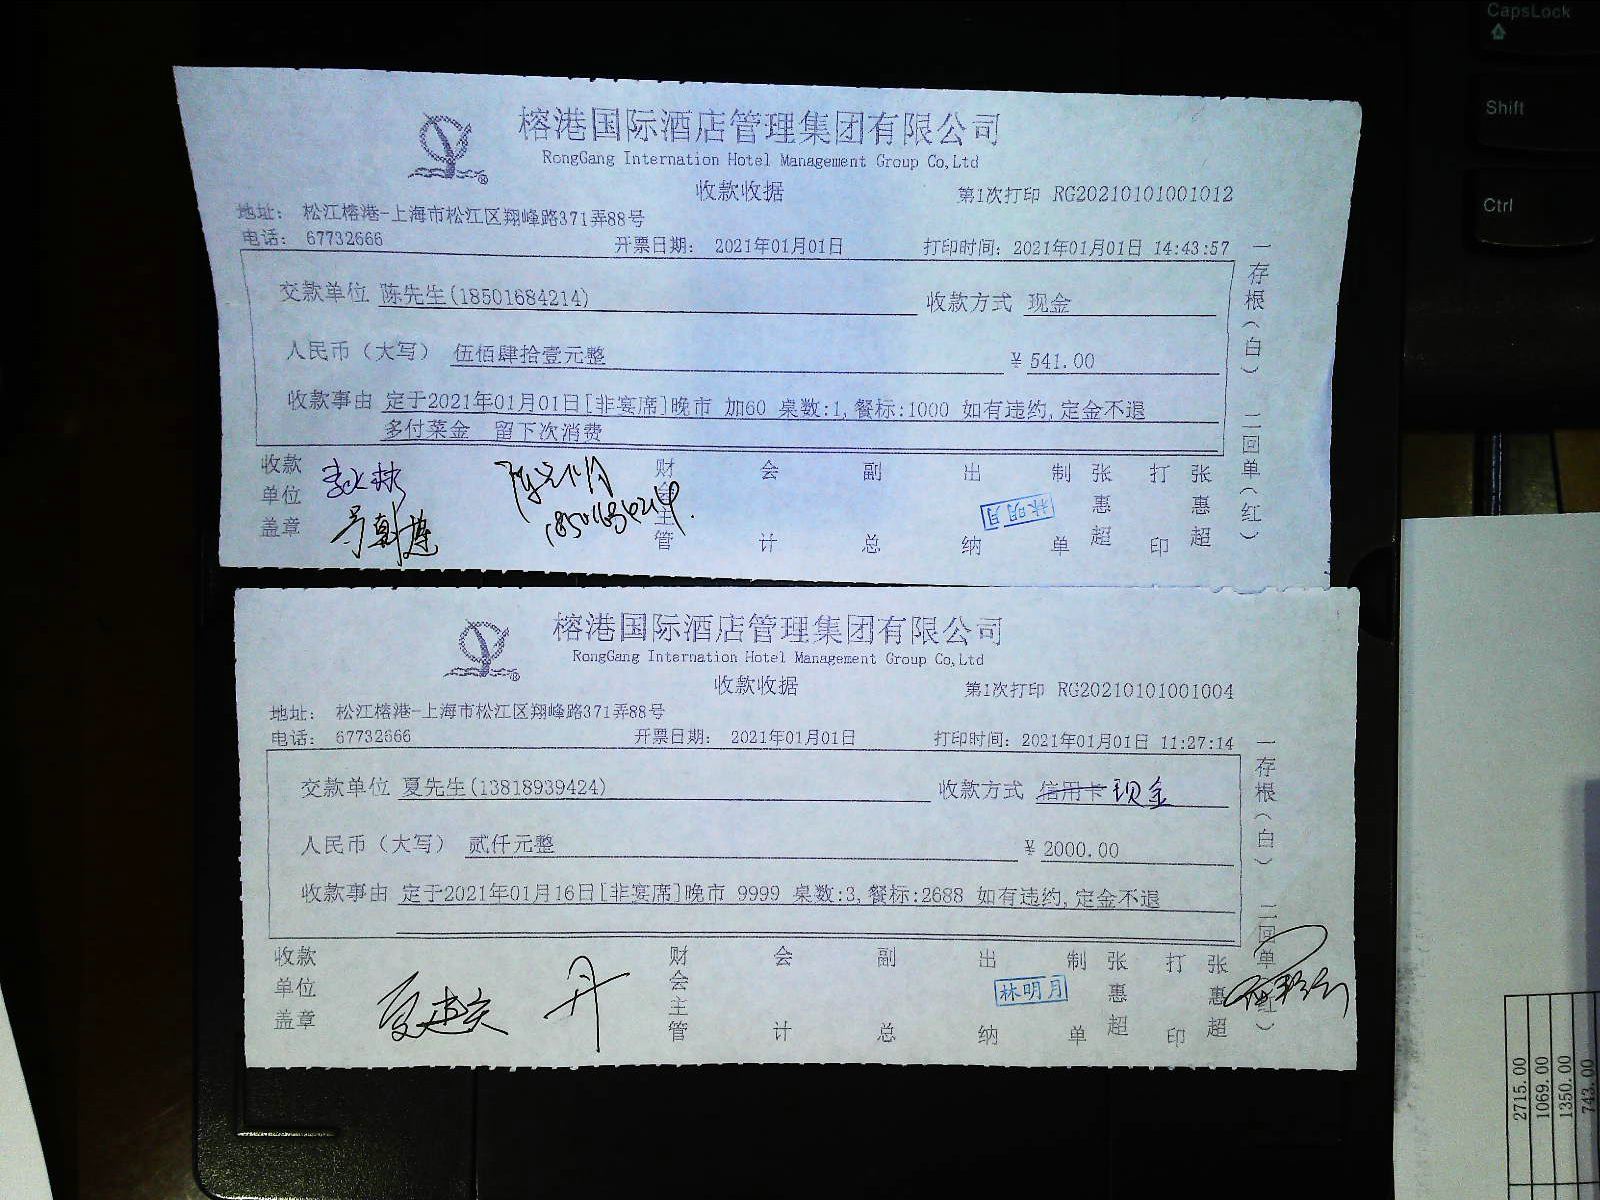 CapsLock
Shift
Ctrl
榕港国际酒店管理集团有限公司
RongGang Internation Hotel Management Group Co,Ltd
收款收据
第1次打印 RG20210101001012
地址: 松江榕港-上海市松江区翔峰路371弄88号
电话: 67732666
开票日期: 2021年01月01日
打印时间: 2021年01月01日 14:43:57
交款单位 陈先生(18501684214)
收款方式 现金
人民币（大写） 伍佰肆拾壹元整
¥ 541.00
收款事由 定于2021年01月01日[非宴席]晚市 加60 桌数:1,餐标:1000 如有违约,定金不退
多付菜金 留下次消费
一存根(白) 二回单(红)
收款单位盖章
18501684214
财会主管
会计
副总
出纳
林明月
制单
张惠超
打印
张惠超
榕港国际酒店管理集团有限公司
RongGang Internation Hotel Management Group Co,Ltd
收款收据
第1次打印 RG20210101001004
地址: 松江榕港-上海市松江区翔峰路371弄88号
电话: 67732666
开票日期: 2021年01月01日
打印时间: 2021年01月01日 11:27:14
交款单位 夏先生(13818939424)
收款方式 信用卡 现金
人民币（大写） 贰仟元整
¥ 2000.00
收款事由 定于2021年01月16日[非宴席]晚市 9999 桌数:3,餐标:2688 如有违约,定金不退
一存根(白) 二回单(红)
收款单位盖章
财会主管
会计
副总
出纳
林明月
制单
张惠超
打印
张惠超
2715.00
1069.00
1350.00
743.00